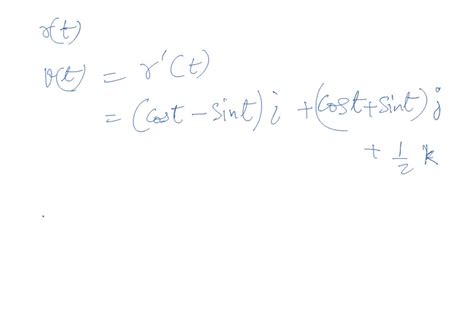 r(t)
v(t) = r'(t)
= (cost - sint) i + (cost + sint) j
+ 1/2 k